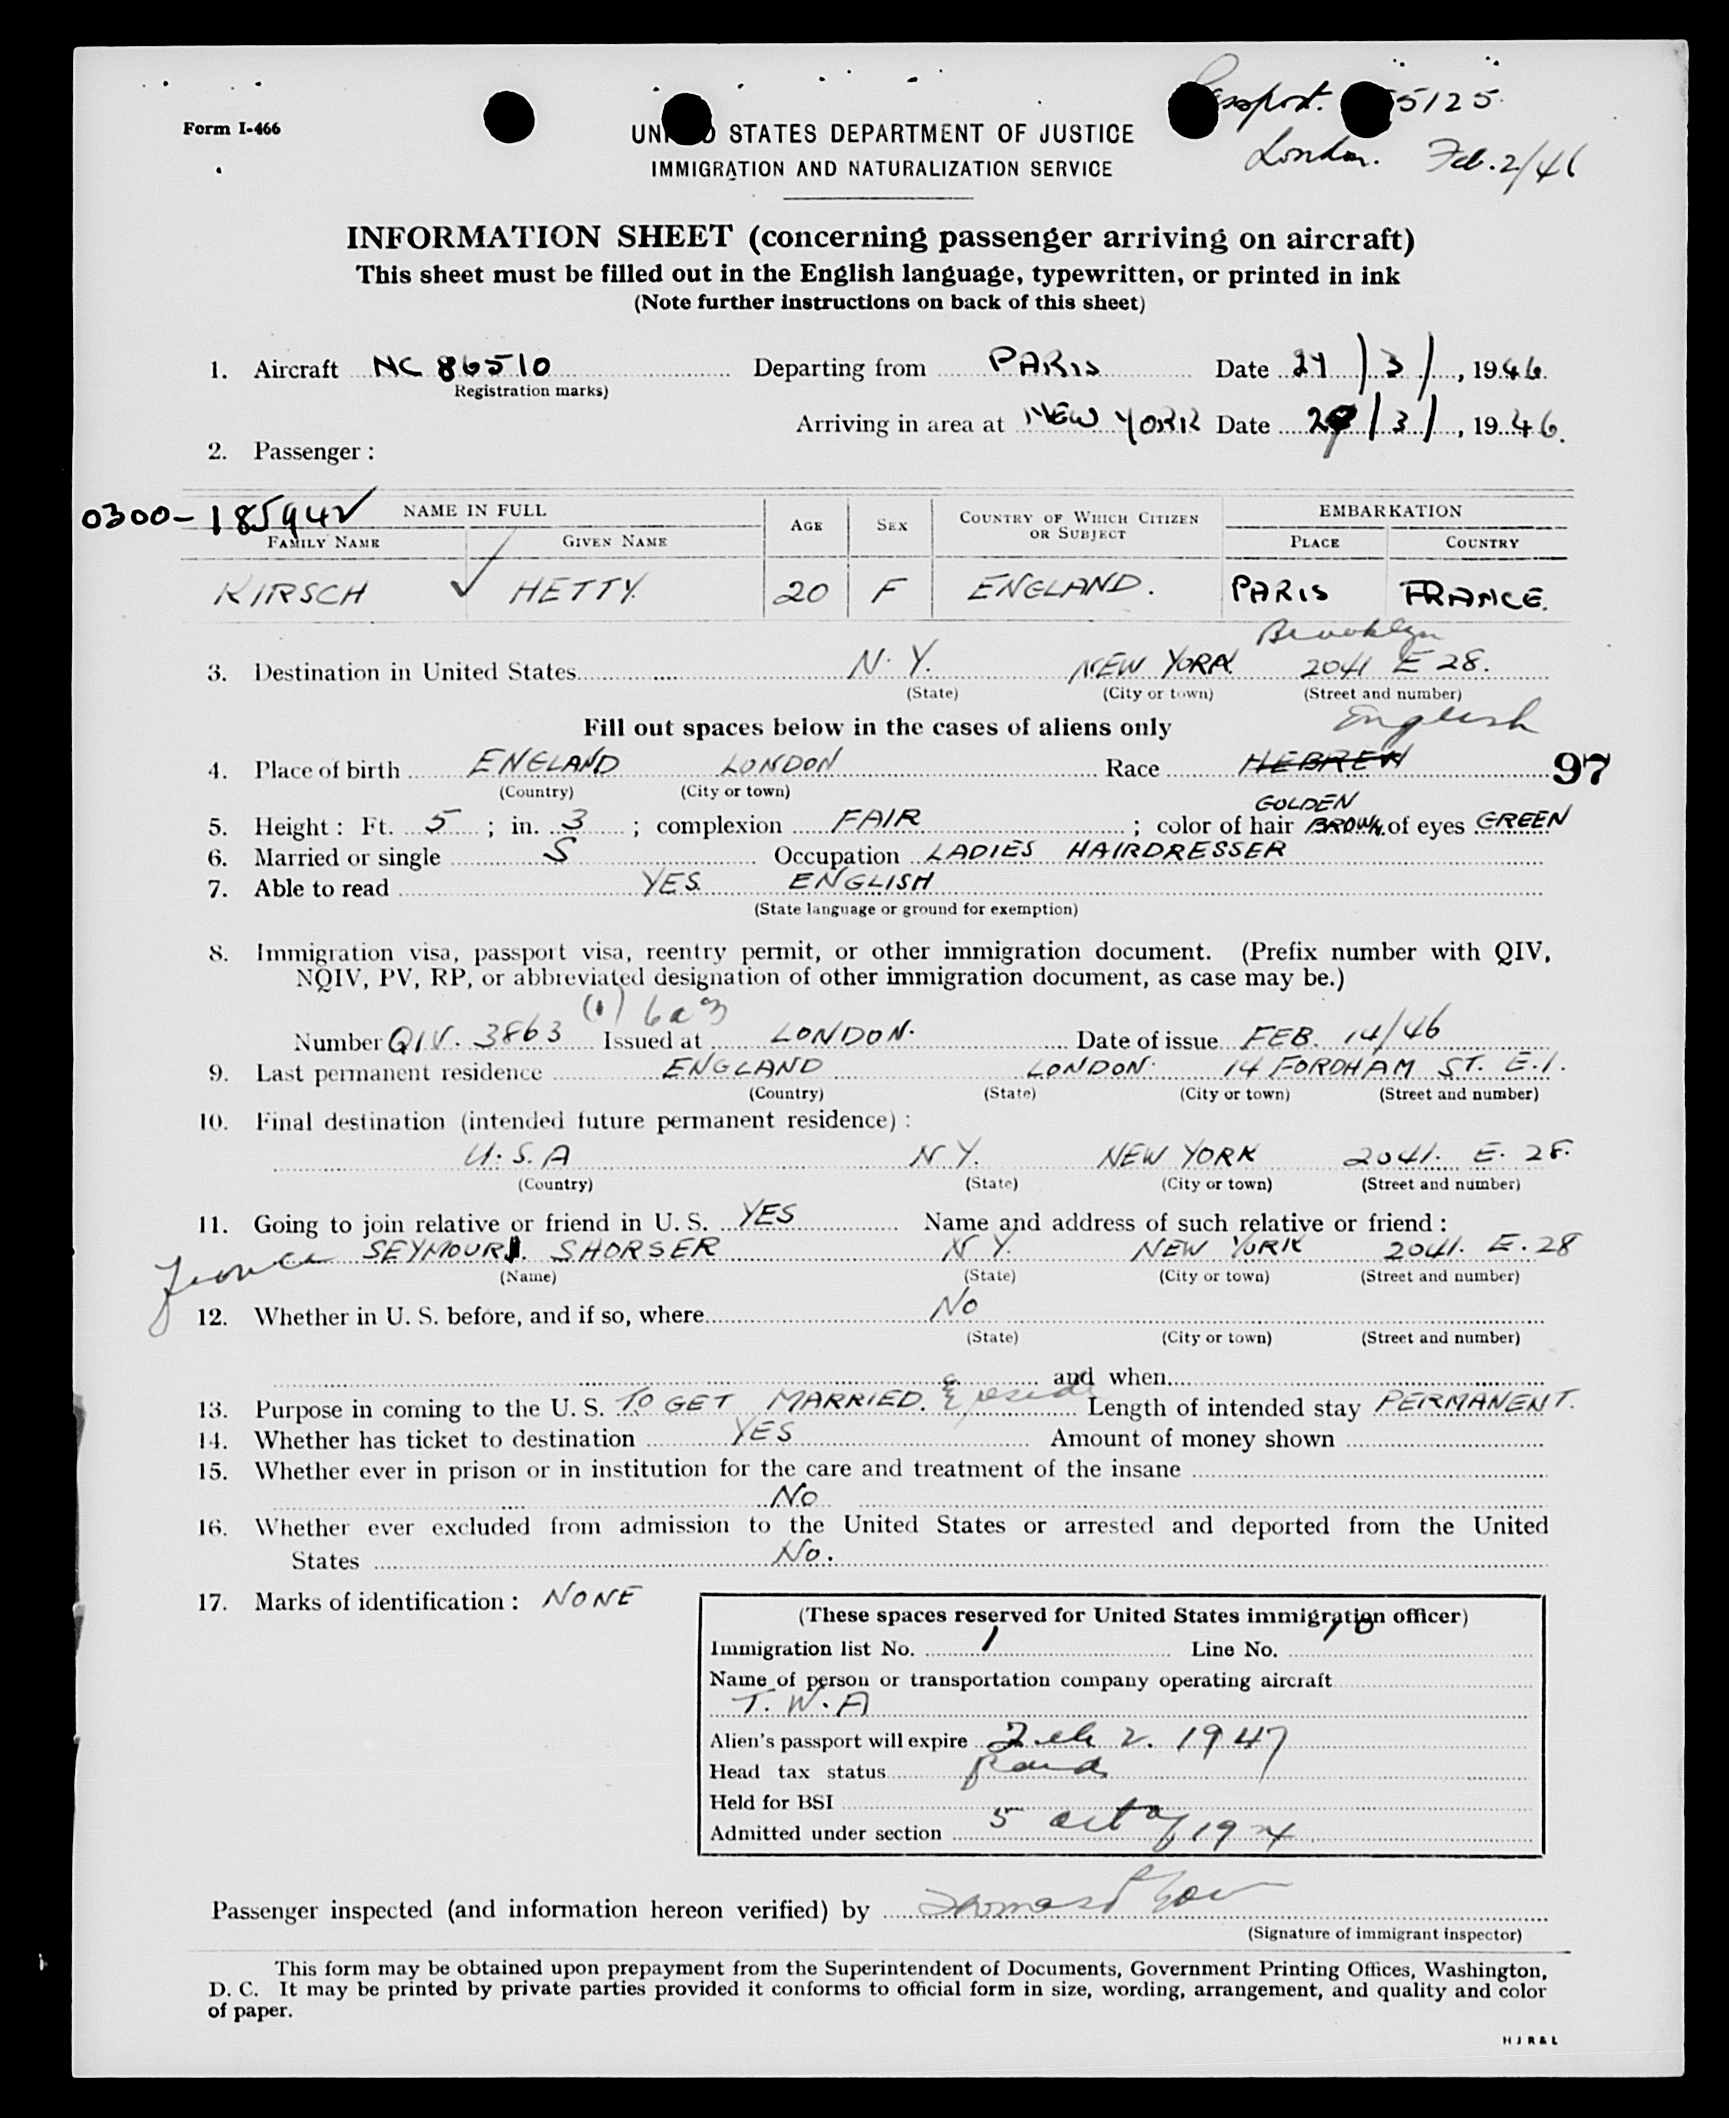 Passport. 55125
London. Feb. 2/46
Form I-466
UNITED STATES DEPARTMENT OF JUSTICE
IMMIGRATION AND NATURALIZATION SERVICE
INFORMATION SHEET (concerning passenger arriving on aircraft)
This sheet must be filled out in the English language, typewritten, or printed in ink
(Note further instructions on back of this sheet)
1. Aircraft NC 86510 Departing from PARIS Date /3/, 1946.
(Registration marks)
Arriving in area at NEW YORK Date /3/, 1946.
2. Passenger:
0300-185942 NAME IN FULL AGE SEX COUNTRY OF WHICH CITIZEN OR SUBJECT EMBARKATION
FAMILY NAME GIVEN NAME PLACE COUNTRY
KIRSCH HETTY. 20 F ENGLAND. PARIS FRANCE.
Brooklyn
3. Destination in United States N. Y. NEW YORK 2041 E 28.
(State) (City or town) (Street and number)
Fill out spaces below in the cases of aliens only English
4. Place of birth ENGLAND LONDON Race HEBREW 97
(Country) (City or town)
GOLDEN
5. Height: Ft. 5; in. 3; complexion FAIR; color of hair BROWN of eyes GREEN
6. Married or single S Occupation LADIES HAIRDRESSER
7. Able to read YES. ENGLISH
(State language or ground for exemption)
8. Immigration visa, passport visa, reentry permit, or other immigration document. (Prefix number with QIV,
NQIV, PV, RP, or abbreviated designation of other immigration document, as case may be.)
(1) 6a3
Number QIV. 3863 Issued at LONDON. Date of issue FEB. 14/46
9. Last permanent residence ENGLAND LONDON. 14 FORDHAM ST. E.1.
(Country) (State) (City or town) (Street and number)
10. Final destination (intended future permanent residence):
U.S.A N.Y. NEW YORK 2041. E. 28.
(Country) (State) (City or town) (Street and number)
11. Going to join relative or friend in U. S. YES Name and address of such relative or friend:
Fiance SEYMOUR SHORSER N.Y. NEW YORK 2041. E. 28
(Name) (State) (City or town) (Street and number)
12. Whether in U. S. before, and if so, where No
(State) (City or town) (Street and number)
and when
13. Purpose in coming to the U. S. TO GET MARRIED. & reside Length of intended stay PERMANENT.
14. Whether has ticket to destination YES Amount of money shown
15. Whether ever in prison or in institution for the care and treatment of the insane
No
16. Whether ever excluded from admission to the United States or arrested and deported from the United
States No.
17. Marks of identification: NONE
(These spaces reserved for United States immigration officer)
Immigration list No. 1 Line No. 10
Name of person or transportation company operating aircraft
T.W.A
Alien's passport will expire Feb 2. 1947
Head tax status Paid
Held for BSI
Admitted under section 5 act of 1924
Passenger inspected (and information hereon verified) by Thomas
(Signature of immigrant inspector)
This form may be obtained upon prepayment from the Superintendent of Documents, Government Printing Offices, Washington,
D. C. It may be printed by private parties provided it conforms to official form in size, wording, arrangement, and quality and color
of paper.
H J R & L